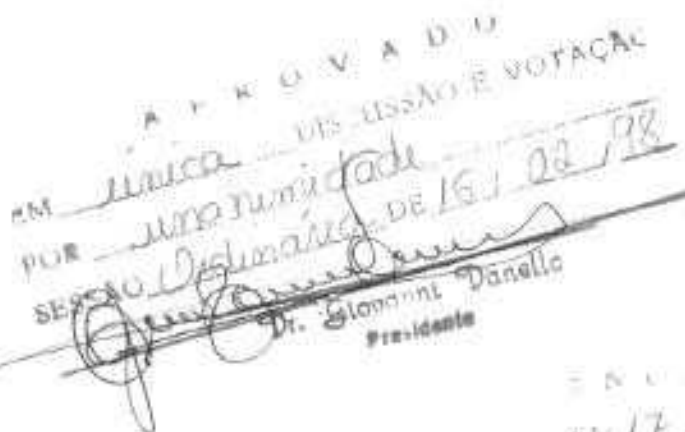 APROVADO
EM única DISCUSSÃO E VOTAÇÃO
POR unanimidade
SESSÃO Ordinária DE 16 / 02 / 98
Dr. Giovanni Danello
Presidente